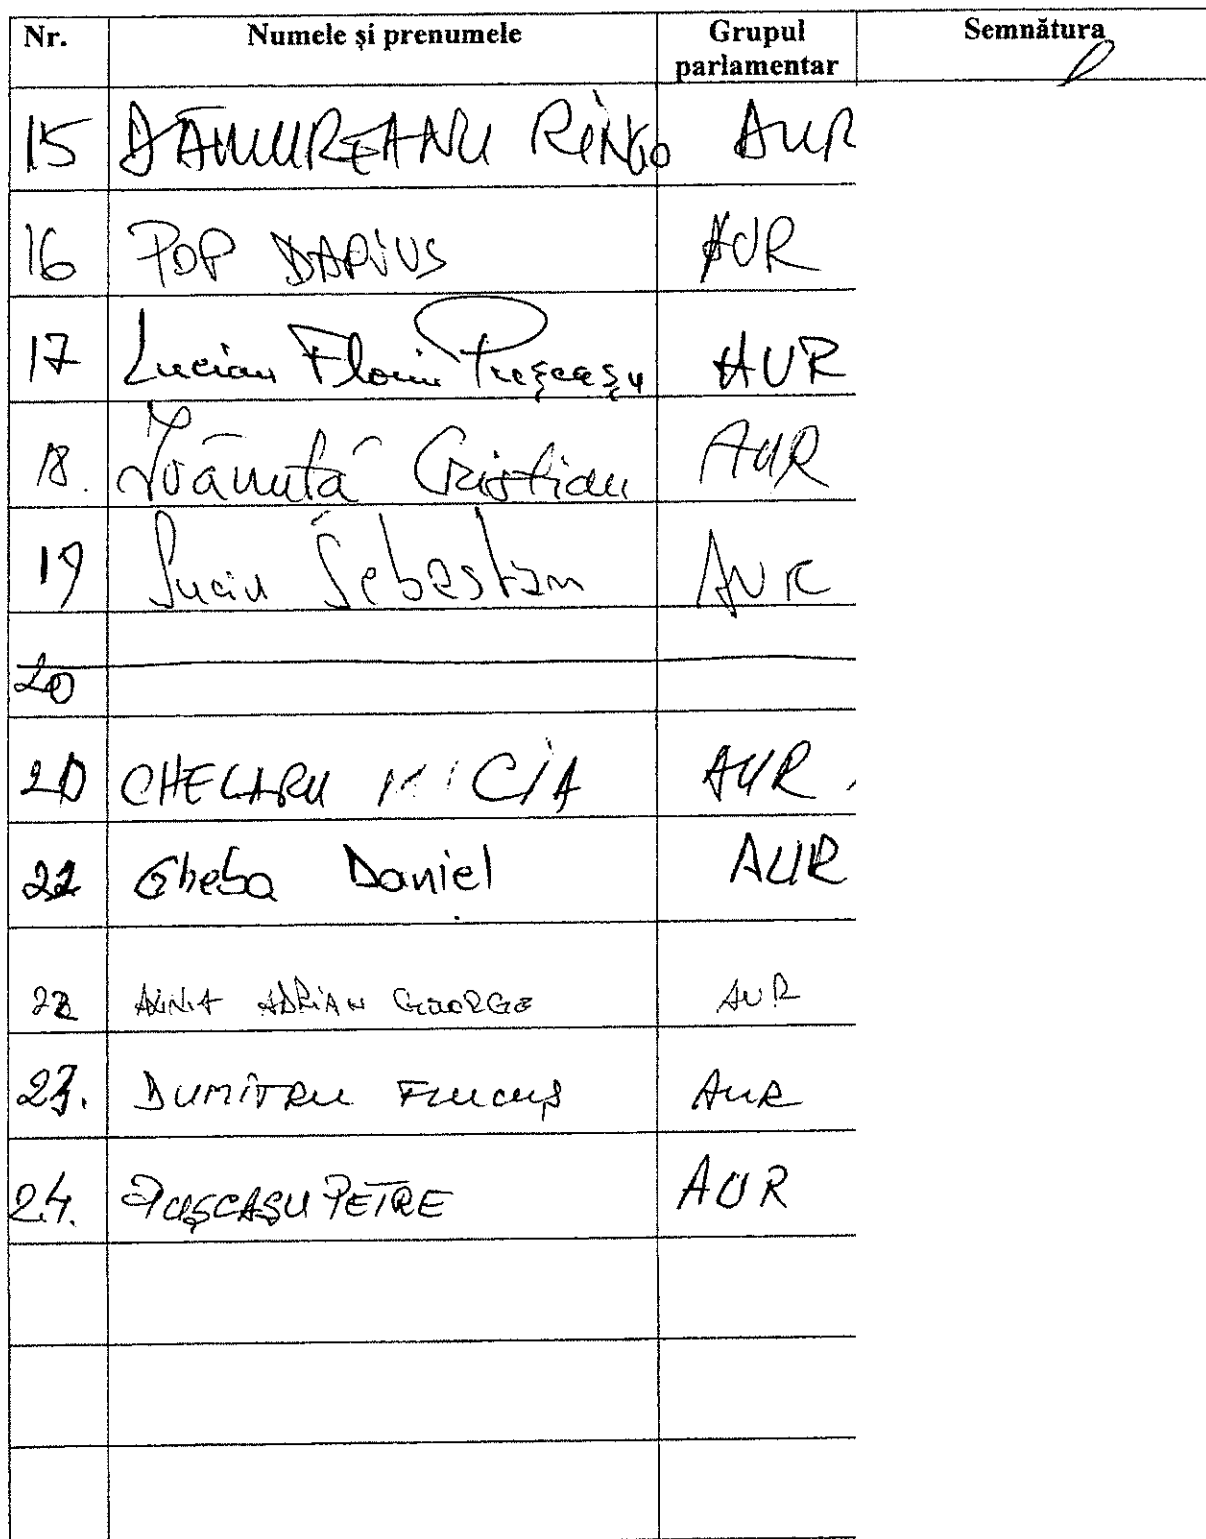 Nr. Numele și prenumele Grupul parlamentar Semnătura
15 DĂMUREANU RINGO AUR
16 POP DARIUS AUR
17 Lucian Florin Pușcașu AUR
18. Ivănuță Cristian AUR
19 Suciu Sebastian AUR
20
20 CHELARU AUR
22 Gheba Daniel AUR
22 AXINIA ADRIAN GEORGE AUR
23. DUMITRU AUR
24. PUȘCAȘU PETRE AUR